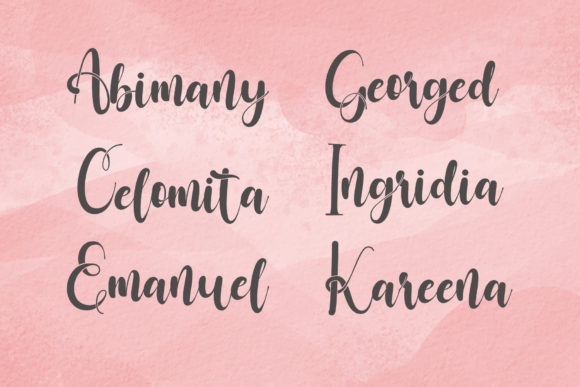 Abimany Georged
Celomita Ingridia
Emanuel Kareena